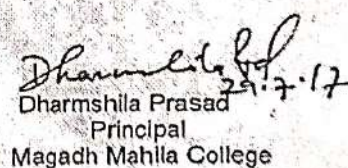 Dharmshila Prd
29.7.17
Dharmshila Prasad
Principal
Magadh Mahila College